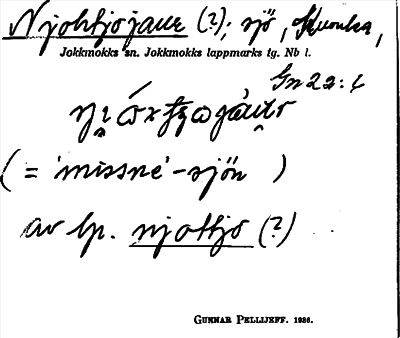 Njohtjojaur (?); sjö,
Jokkmokks sn. Jokkmokks lappmarks tg. Nb l.
Gn 22:4
(= 'missne'-sjön )
av lp. njottjo (?)
GUNNAR PELLIJEFF. 1936.